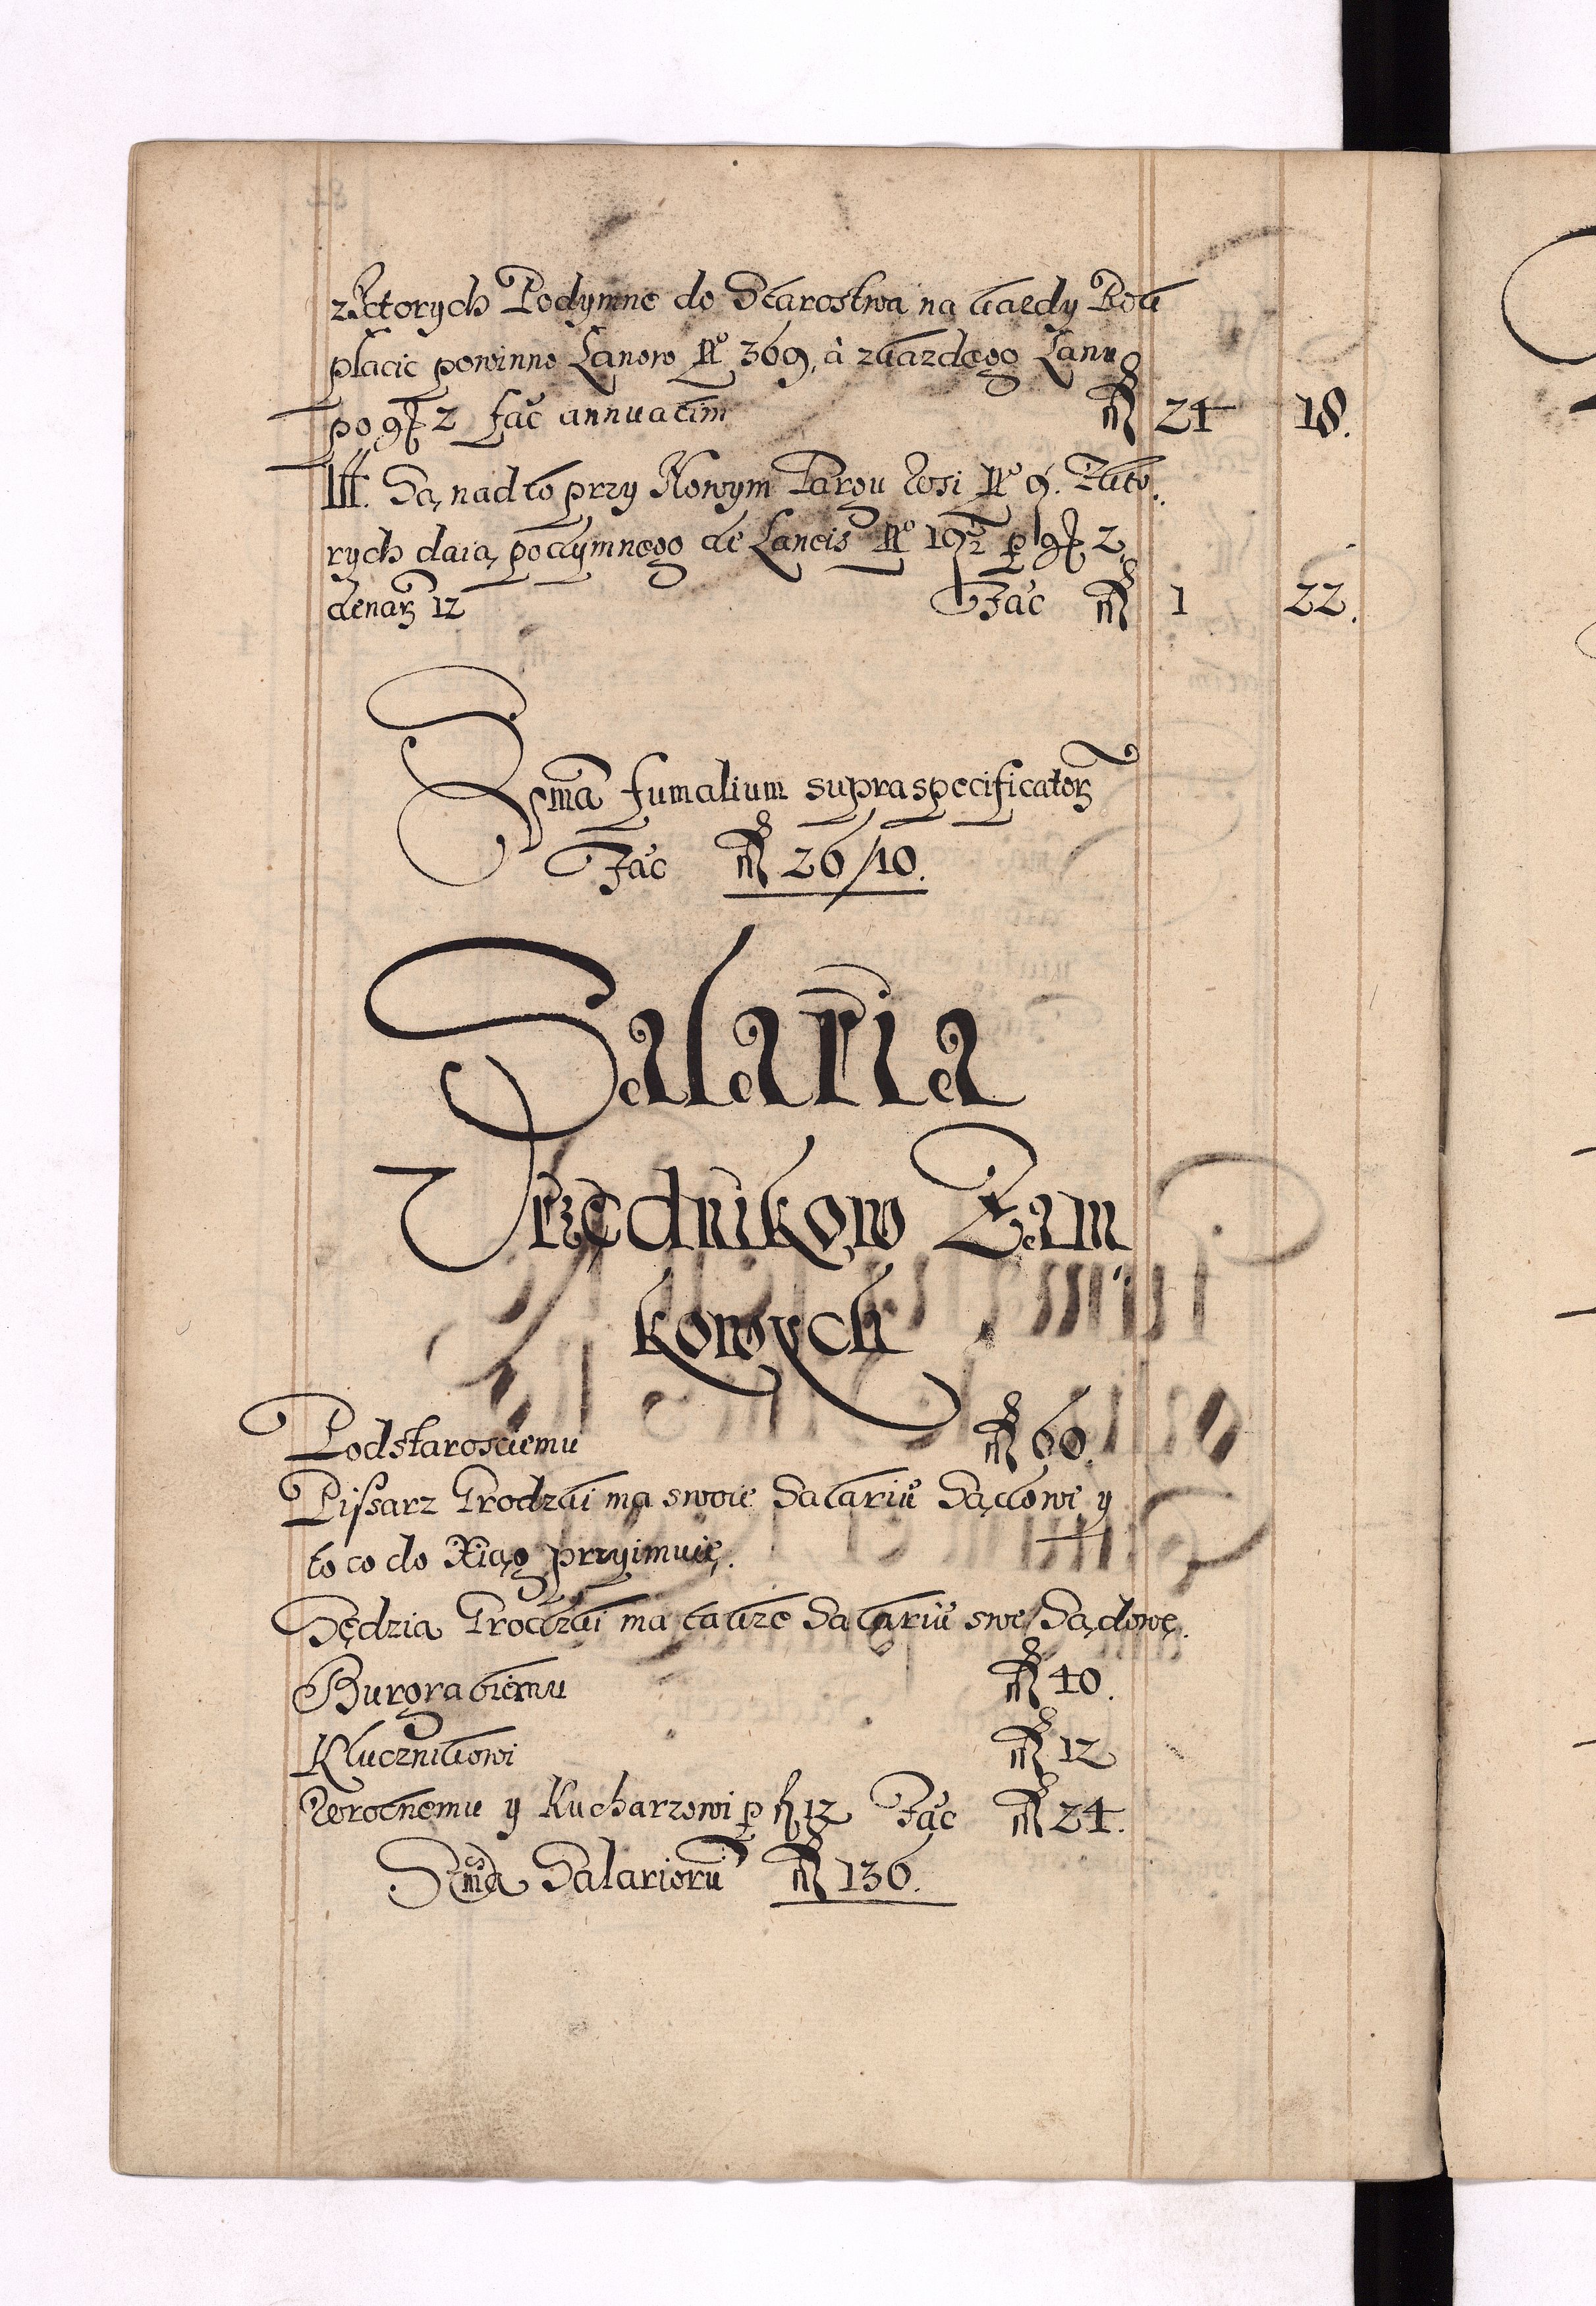 z Ktorych Podymne do Starostwa na kazdy Rok
płacic powinno Łanow No 369, à z kazdego Łanu
po g 2 fac̃ annuatim fl 24 18.
III. Są nadto przy Nowym Targu Wsi No 9. Z kto
rych daią podymnego de Laneis No 19½ p g 2
denarz 12 Fac̃ fl 1 22.
Sum̃a fumalium supraspecificatorz
Fac̃ fl 26/10.
Salaria
Vrzędnikow Zam
kowych
Podstarosciemu fl 60.
Pissarz Grodzki ma swoie Salariũ Sądowe y
to co do Xiąg przyimuię.
Sędzia Grodzki ma takze Salariũ swe Sądowe.
Burgrabiemu fl 40.
Klucznikowi fl 12
Wrotnemu y Kucharzowi p fl 12 Fac̃ fl 24.
Sum̃a Salariorũ fl 136.